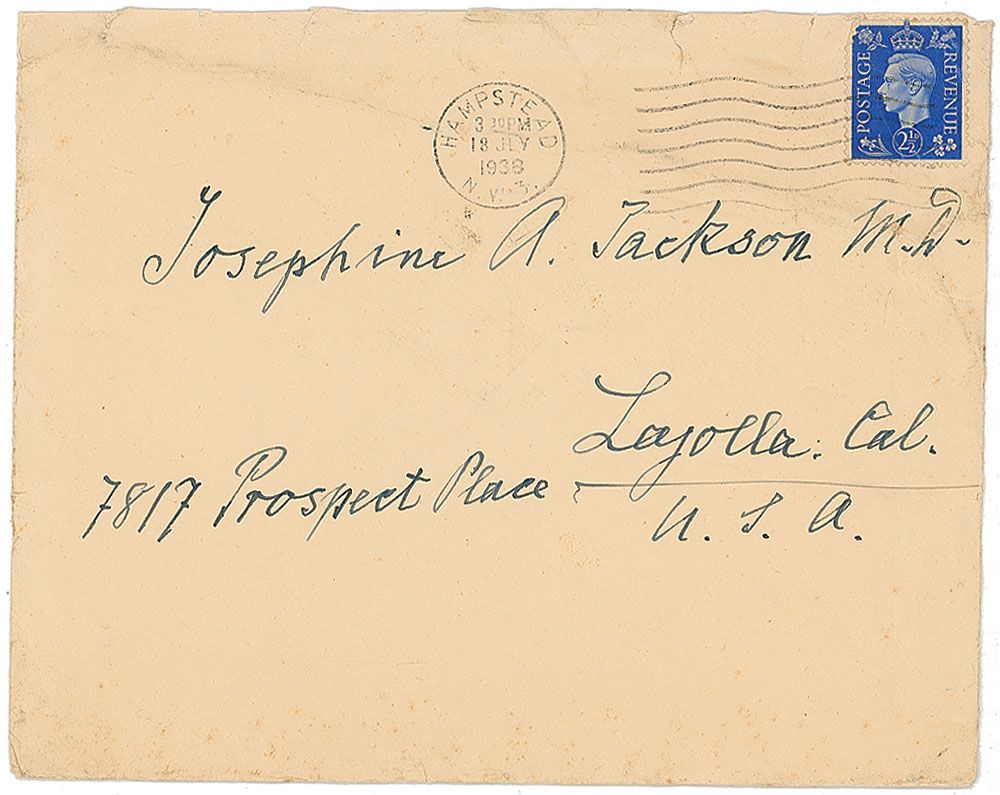 POSTAGE REVENUE
2½D
HAMPSTEAD
3 30PM
18 JLY
1938
N.W.3.
Josephine A. Jackson M.D.
Lajolla. Cal.
7817 Prospect Place
U. S. A.